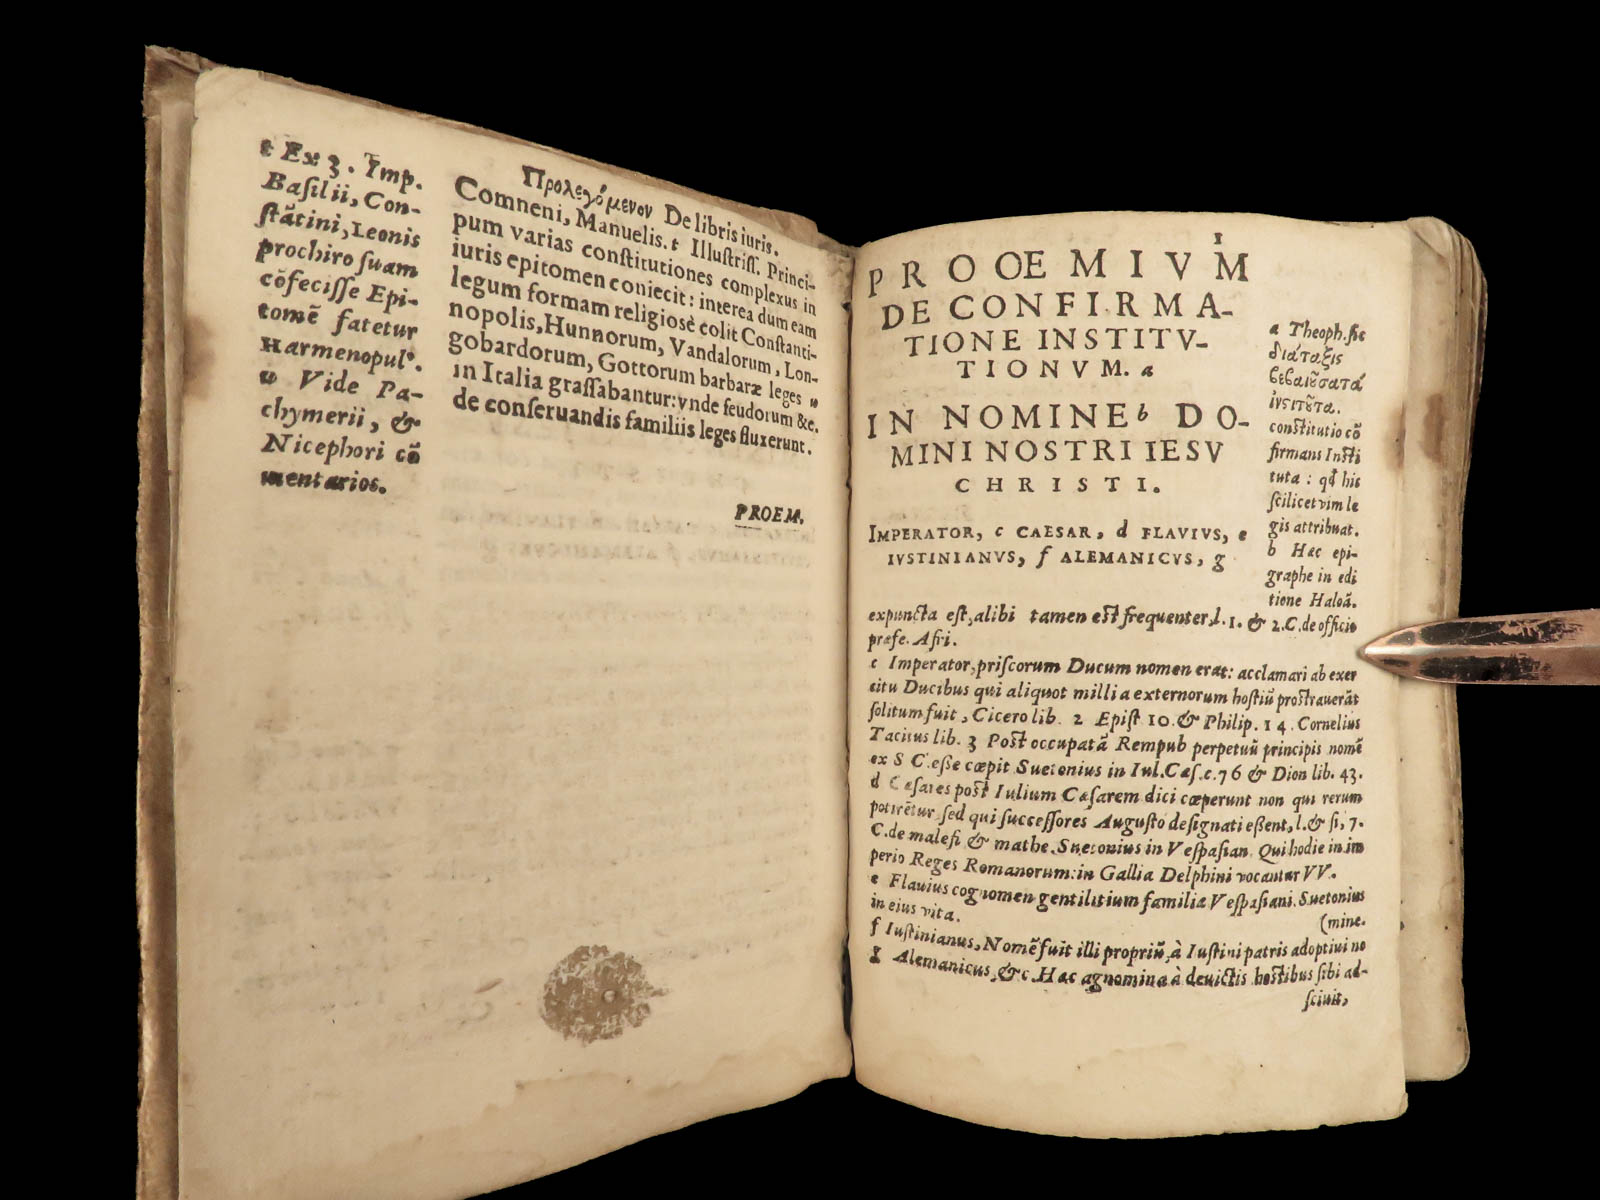 Προλεγόμενον De libris iuris.
t Ex 3. Imp.
Baſilii, Con-
ſtātini, Leonis
prochiro ſuam
cōfeciſſe Epi-
tomē fatetur
Harmenopulꝰ.
u Vide Pa-
chymerii, &
Nicephori cō
mentarios.
Comneni, Manuelis. t Illuſtriſſ. Princi-
pum varias conſtitutiones complexus in
iuris epitomen coniecit: interea dum eam
legum formam religiosè colit Conſtanti-
nopolis, Hunnorum, Vandalorum, Lon-
gobardorum, Gottorum barbaræ leges u
in Italia graſſabantur: vnde feudorum &c.
de conſeruandis familiis leges fluxerunt.
PROEM.
1
PROOEMIVM
DE CONFIRMA-
TIONE INSTITV-
TIONVM. a
IN NOMINE b DO-
MINI NOSTRI IESV
CHRISTI.
IMPERATOR, c CAESAR, d FLAVIVS, e
IVSTINIANVS, f ALEMANICVS, g
a Theoph. ſic
διάταξις
βεβαιοῦσα τὰ
ἰνςιτοῦτα.
conſtitutio cō
firmans Inſti
tuta : qđ his
ſcilicet vim le
gis attribuat.
b Hac epi-
graphe in edi
tione Haloā.
expuncta eſt, alibi tamen eſt frequenter, l. 1. & 2. C. de officio
præfe. Afri.
c Imperator, priſcorum Ducum nomen erat: acclamari ab exer
citu Ducibus qui aliquot millia externorum hoſtiū proſtrauerāt
ſolitum fuit, Cicero lib. 2 Epiſt 10. & Philip. 14. Cornelius
Tacitus lib. 3 Poſt occupatā Rempub perpetuū principis nomē
ex S C. eſſe cœpit Suetonius in Iul. Cæſ. c. 76 & Dion lib. 43.
d Cæſares poſt Iulium Cæſarem dici cœperunt non qui rerum
potirētur, ſed qui ſucceſſores Auguſto deſignati eſſent, l. & ſi, 7.
C. de malefi & mathe. Suetonius in Veſpaſian. Qui hodie in im
perio Reges Romanorum: in Gallia Delphini vocantur VV.
e Flauius cognomen gentilitium familiæ Veſpaſiani. Suetonius
in eius vita.
(mine.
f Iuſtinianus, Nomē fuit illi propriū, à Iuſtini patris adoptiui no
g Alemanicus, &c. Hac agnomina à deuictis hoſtibus ſibi ad-
ſciuit,